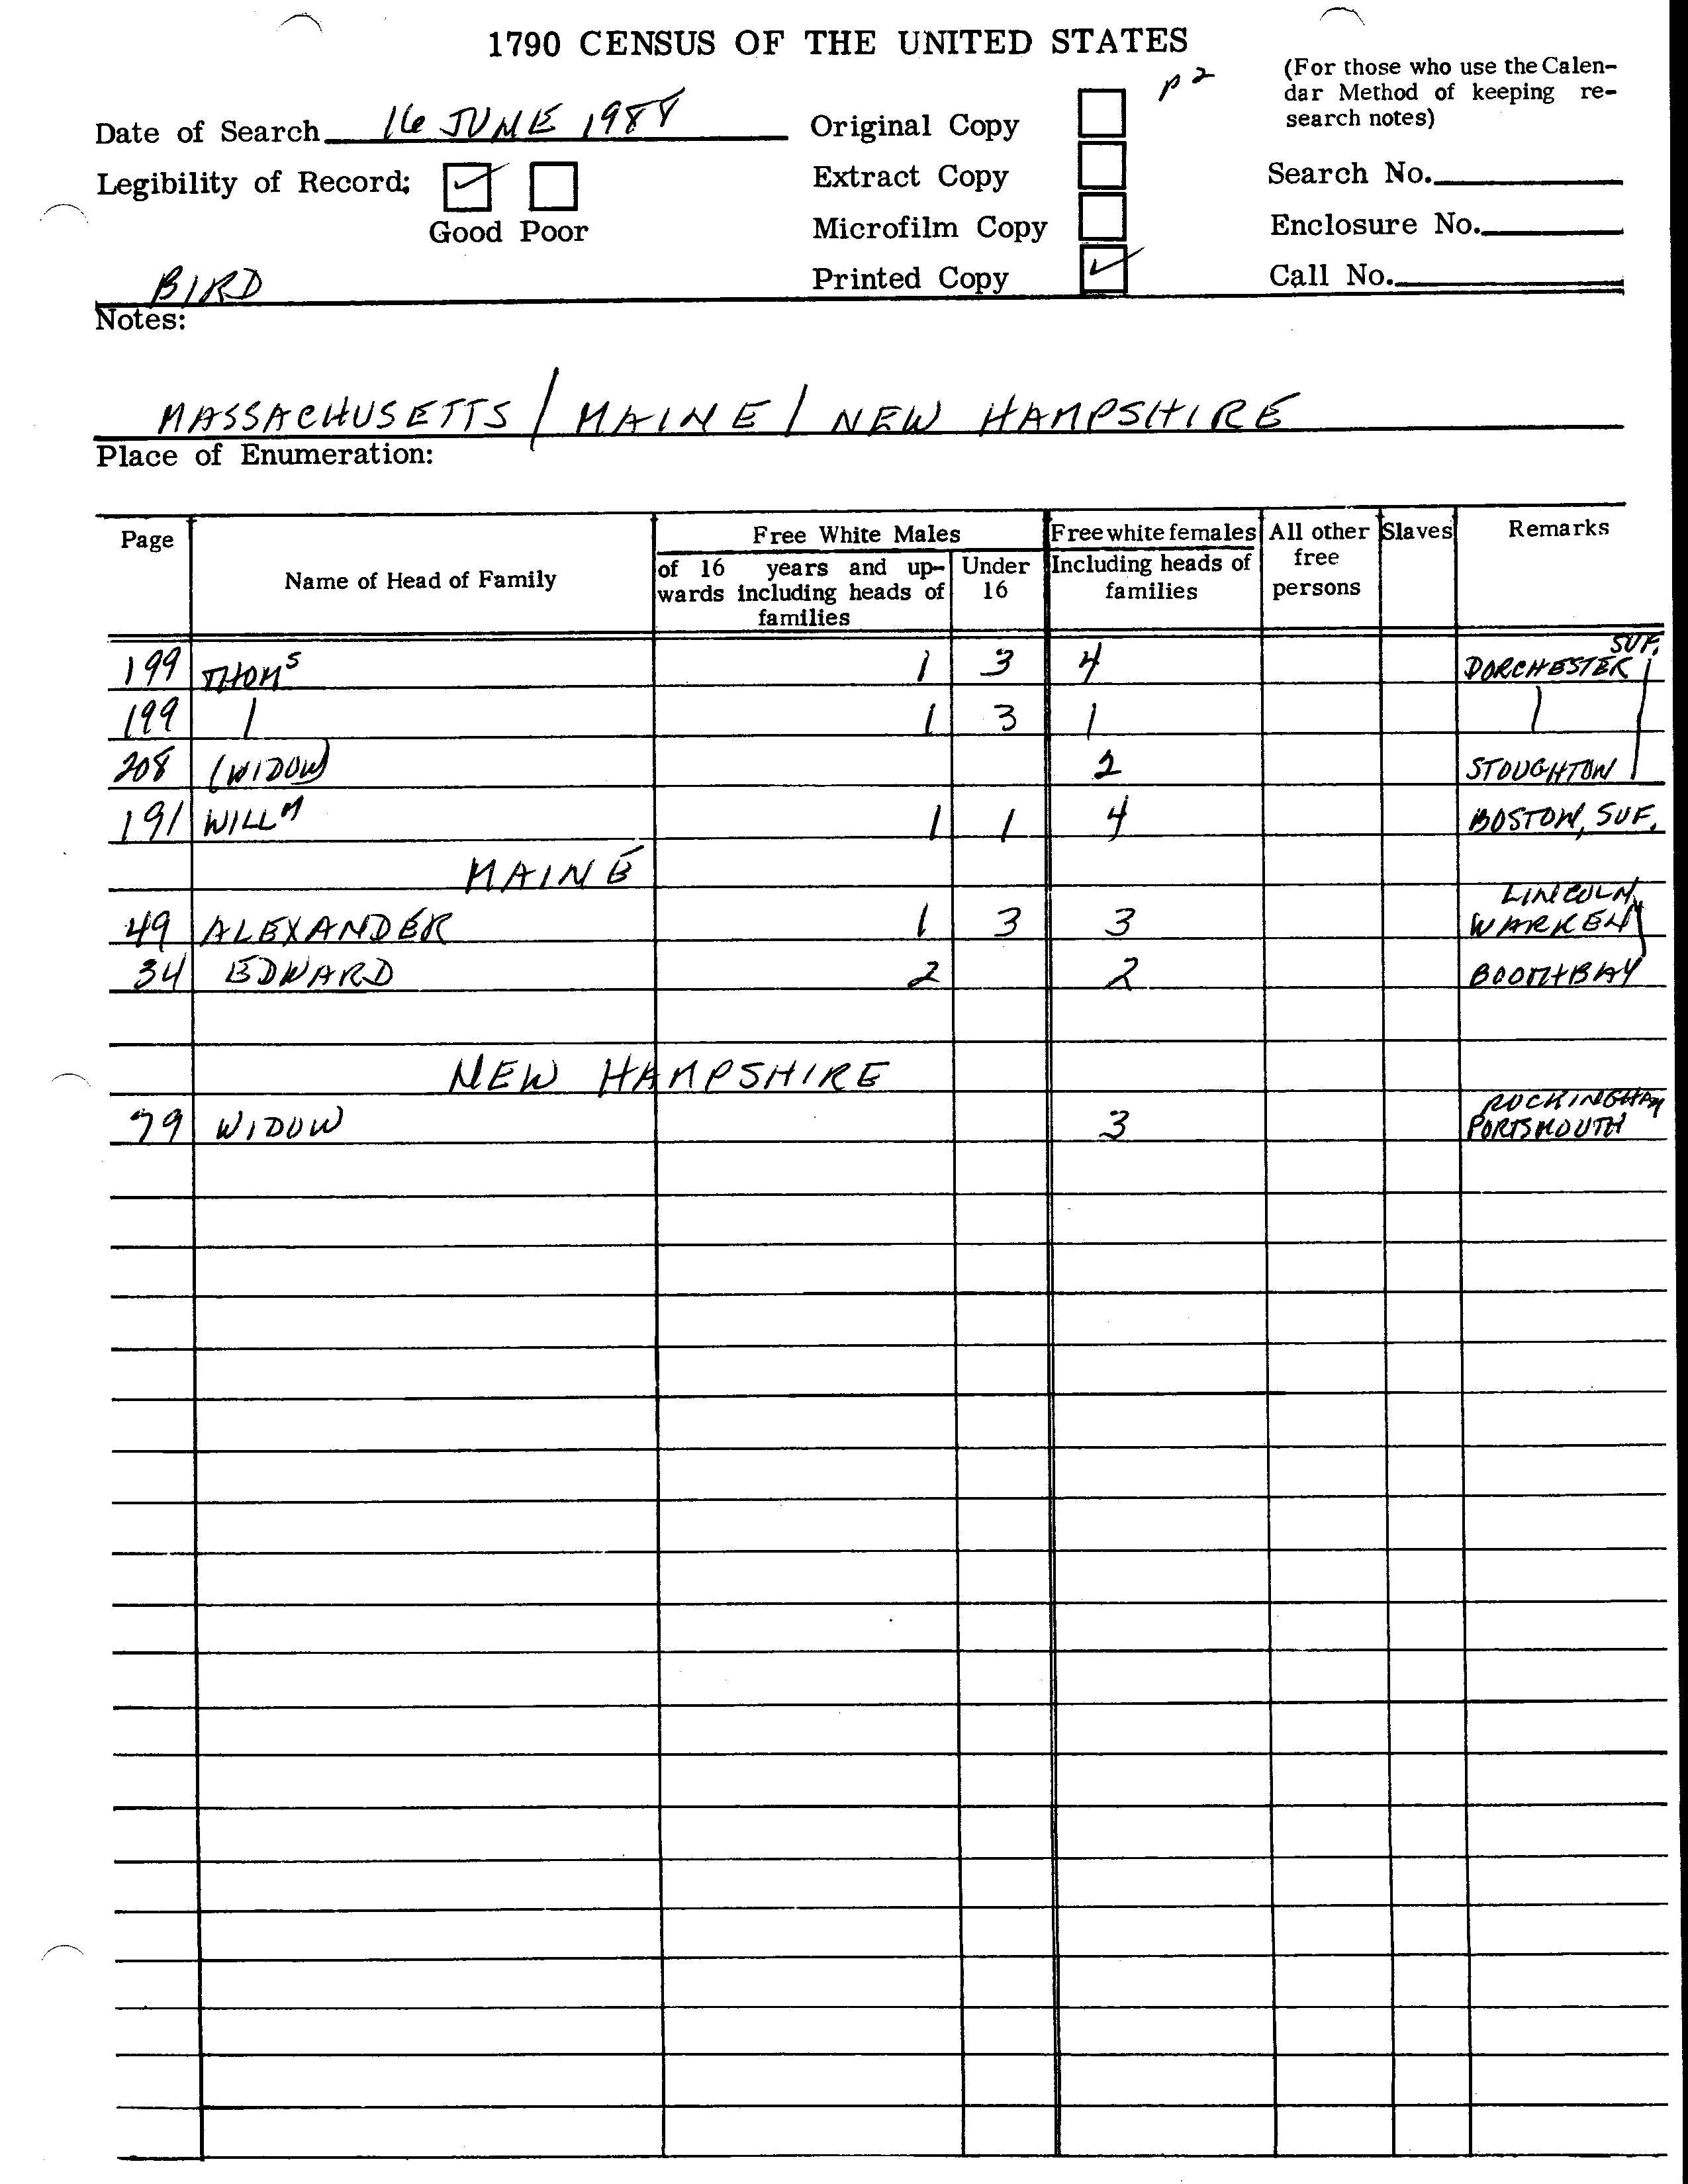 1790 CENSUS OF THE UNITED STATES
p 2
(For those who use the Calen-
dar Method of keeping re-
search notes)
Date of Search 16 JUNE 1988
Original Copy
Legibility of Record:
Extract Copy
Search No.
Good Poor
Microfilm Copy
Enclosure No.
BIRD
Printed Copy
Call No.
Notes:
MASSACHUSETTS / MAINE / NEW HAMPSHIRE
Place of Enumeration:
Page
Name of Head of Family
Free White Males
of 16 years and up-
wards including heads of
families
Under
16
Free white females
Including heads of
families
All other
free
persons
Slaves
Remarks
199 THOMS 1 3 4 DORCHESTER SUF.
199 | 1 3 1 |
208 (WIDOW) 2 STOUGHTON
191 WILLM 1 1 4 BOSTON, SUF.
MAINE
49 ALEXANDER 1 3 3 LINCOLN, WARREN
34 EDWARD 2 2 BOOTHBAY
NEW HAMPSHIRE
79 WIDOW 3 ROCKINGHAM PORTSMOUTH